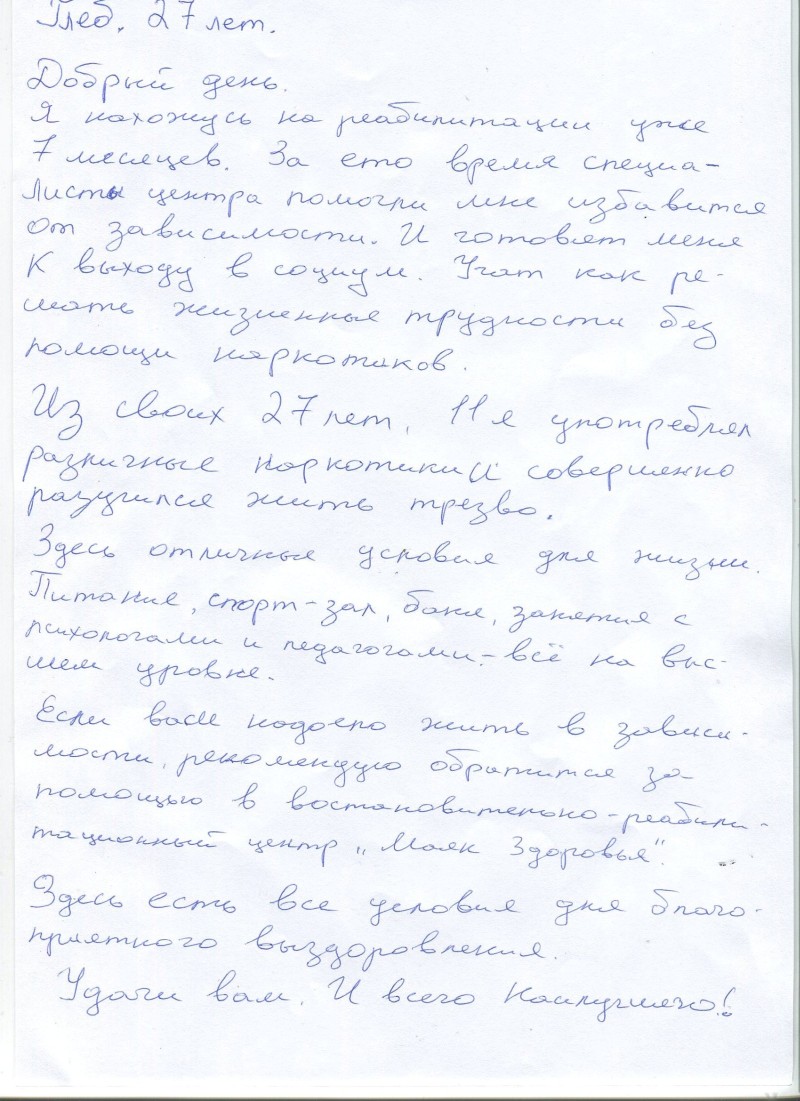 Глеб. 27 лет.
Добрый день.
Я нахожусь на реабилитации уже
7 месяцев. За ето время специа-
листы центра помогли мне избавится
от зависимости. И готовят меня
к выходу в социум. Учат как ре-
шать жизненные трудности без
помощи наркотиков.
Из своих 27 лет, 11 я употреблял
различные наркотики и совершенно
разучился жить трезво.
Здесь отличные условия для жизни.
Питание, спорт-зал, баня, занятия с
психологами и педагогами - всё на выс-
шем уровне.
Если вам надоело жить в зависи-
мости, рекомендую обратится за
помощью в востановительно-реабили-
тационный центр „Маяк Здоровья".
Здесь есть все условия для благо-
приятного выздоровления.
Удачи вам. И всего Наилучшего!